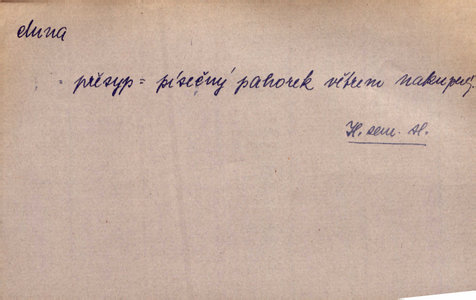 duna
= přesyp = písečný pahorek větrem nakupený.
H. sem. st.